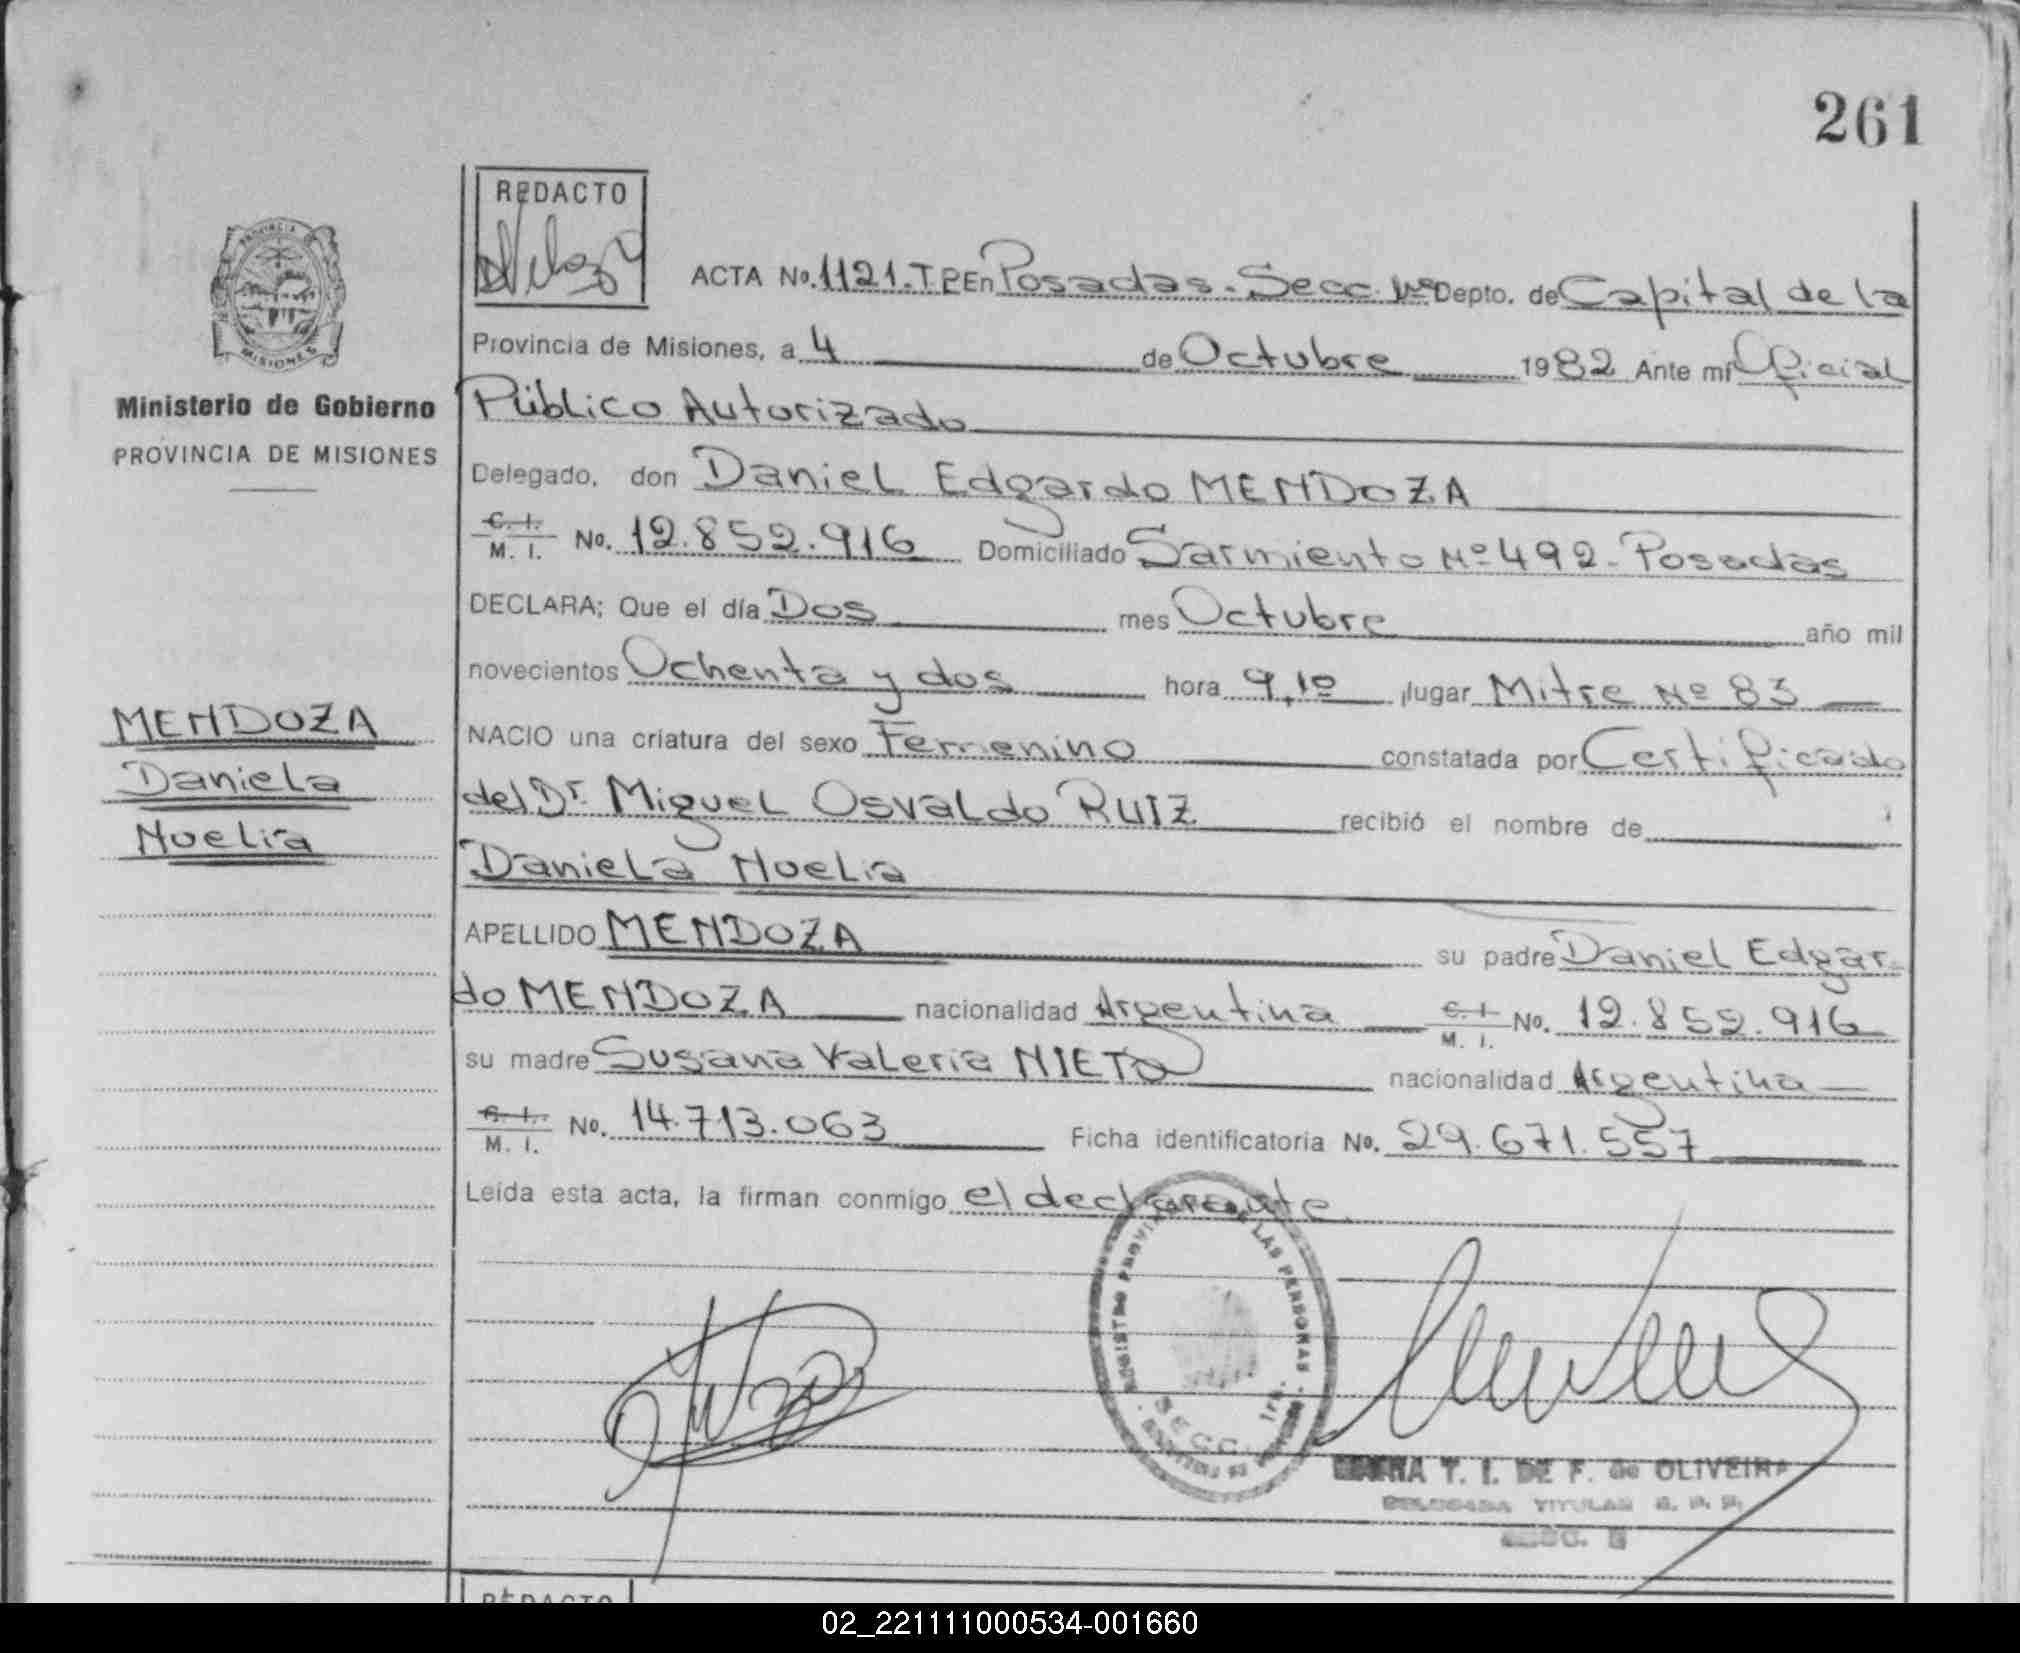 261
REDACTO
PROVINCIA DE
MISIONES
Ministerio de Gobierno
PROVINCIA DE MISIONES
MENDOZA
Daniela
Noelia
ACTA No. 1121.T.P En Posadas. Secc. 1ra Depto. de Capital de la
Provincia de Misiones, a 4 de Octubre 1982 Ante mí Oficial
Público Autorizado
Delegado, don Daniel Edgardo MENDOZA
C. I. M. I. No. 12.852.916 Domiciliado Sarmiento Nº 492. Posadas
DECLARA; Que el día Dos mes Octubre año mil
novecientos Ochenta y dos hora 9,10 lugar Mitre Nº 83
NACIO una criatura del sexo Femenino constatada por Certificado
del Dr. Miguel Osvaldo RUIZ recibió el nombre de
Daniela Noelia
APELLIDO MENDOZA su padre Daniel Edgar
do MENDOZA nacionalidad Argentina C. I. M. I. No. 12.852.916
su madre Susana Valeria NIETO nacionalidad Argentina
C. I. M. I. No. 14.713.063 Ficha identificatoria No. 29.671.557
Leída esta acta, la firman conmigo el declarante
REGISTRO PROVINCIAL LAS PERSONAS
SECC. 1ra.
POSADAS MISIONES
T. I. DE F. de OLIVEIRA
DELEGADA TITULAR R. P. P.
SECC.
REDACTO
02_221111000534-001660